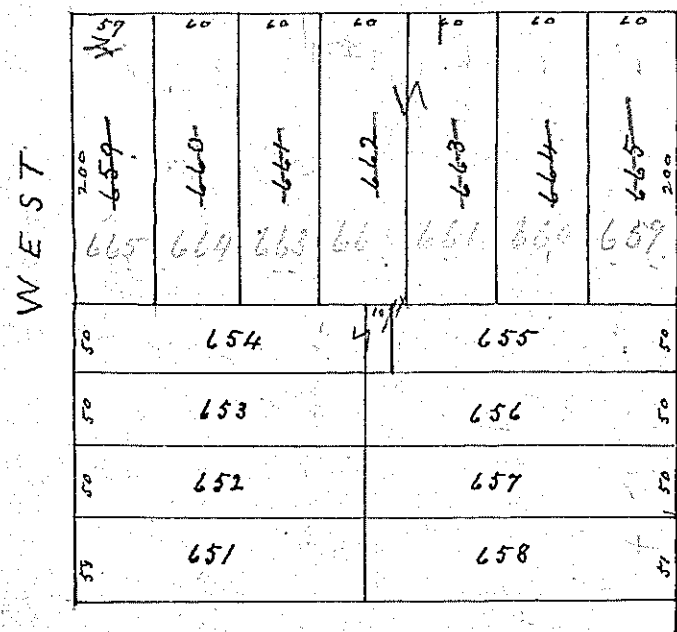 57 60 60 60 60 60 60
200 659 660 661 662 663 664 665 200
665 664 663 66 661 660 659
WEST
50 654 10 655 50
50 653 656 50
50 652 657 50
651 658